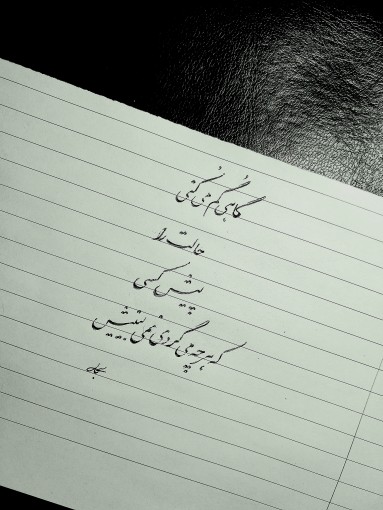 گاهی گُم می کُنی
حالت را
پیش کسی
که هرچه می گردی نمی بینیش